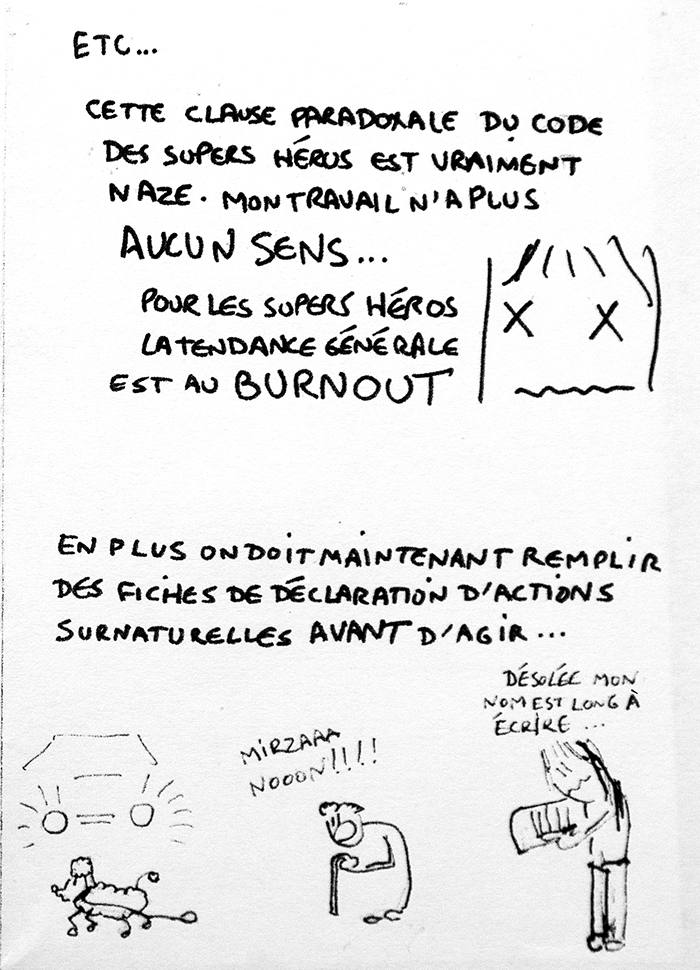 ETC...
CETTE CLAUSE PARADOXALE DU CODE
DES SUPERS HÉROS EST VRAIMENT
NAZE. MON TRAVAIL N'A PLUS
AUCUN SENS...
POUR LES SUPERS HÉROS
LA TENDANCE GÉNÉRALE
EST AU BURNOUT
EN PLUS ON DOIT MAINTENANT REMPLIR
DES FICHES DE DÉCLARATION D'ACTIONS
SURNATURELLES AVANT D'AGIR...
DÉSOLÉE MON
NOM EST LONG À
ÉCRIRE...
MIRZAAA
NOOON!!!!